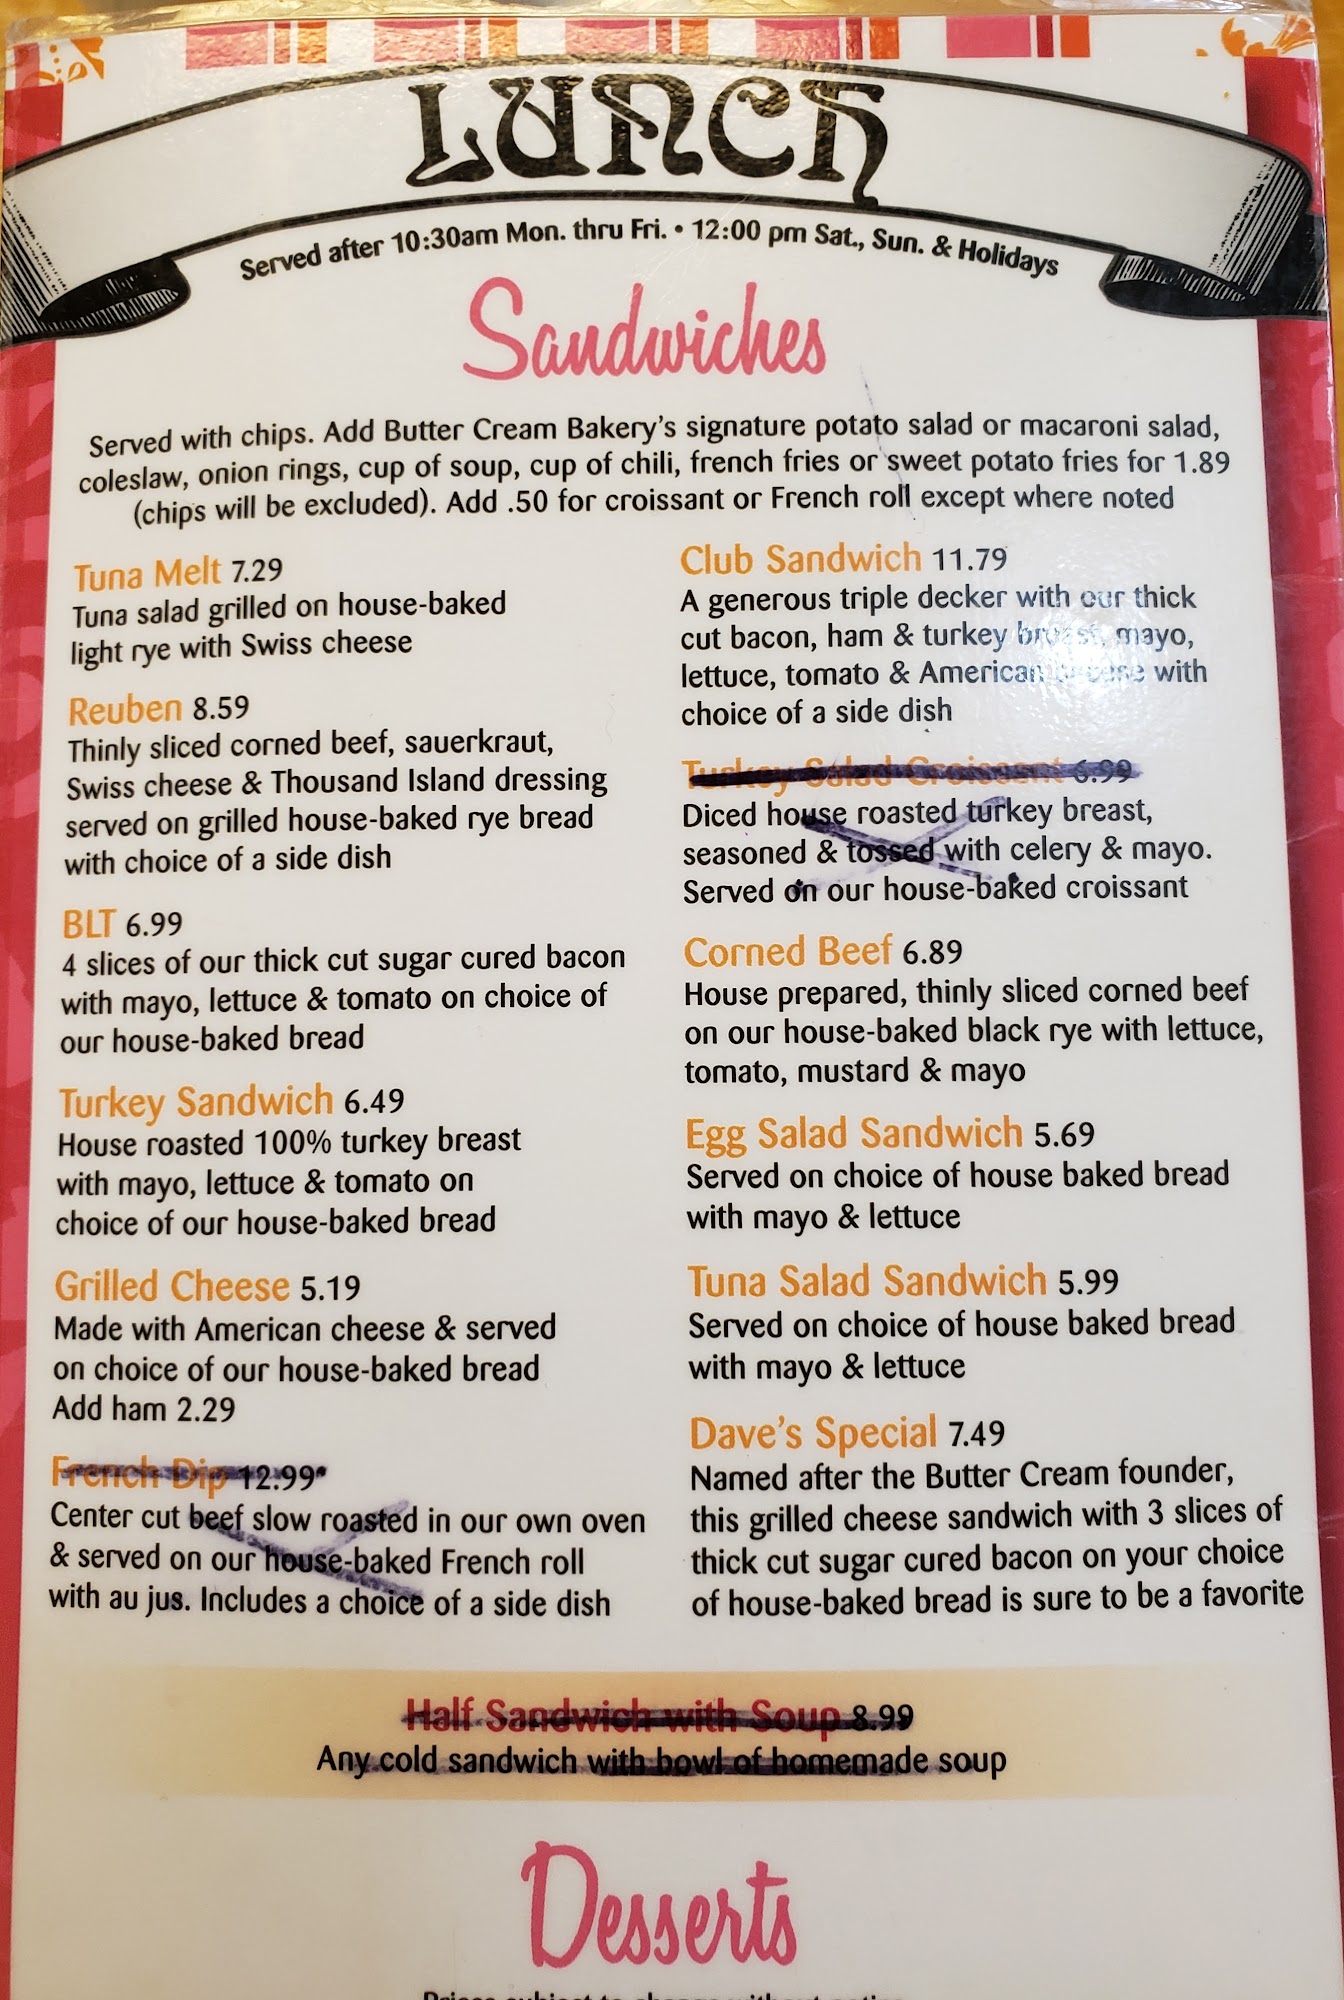 LUNCH
Served after 10:30am Mon. thru Fri. • 12:00 pm Sat., Sun. & Holidays
Sandwiches
Served with chips. Add Butter Cream Bakery's signature potato salad or macaroni salad,
coleslaw, onion rings, cup of soup, cup of chili, french fries or sweet potato fries for 1.89
(chips will be excluded). Add .50 for croissant or French roll except where noted
Tuna Melt 7.29
Tuna salad grilled on house-baked
light rye with Swiss cheese
Reuben 8.59
Thinly sliced corned beef, sauerkraut,
Swiss cheese & Thousand Island dressing
served on grilled house-baked rye bread
with choice of a side dish
BLT 6.99
4 slices of our thick cut sugar cured bacon
with mayo, lettuce & tomato on choice of
our house-baked bread
Turkey Sandwich 6.49
House roasted 100% turkey breast
with mayo, lettuce & tomato on
choice of our house-baked bread
Grilled Cheese 5.19
Made with American cheese & served
on choice of our house-baked bread
Add ham 2.29
French Dip 12.99
Center cut beef slow roasted in our own oven
& served on our house-baked French roll
with au jus. Includes a choice of a side dish
Club Sandwich 11.79
A generous triple decker with our thick
cut bacon, ham & turkey breast, mayo,
lettuce, tomato & American cheese with
choice of a side dish
Turkey Salad Croissant 6.99
Diced house roasted turkey breast,
seasoned & tossed with celery & mayo.
Served on our house-baked croissant
Corned Beef 6.89
House prepared, thinly sliced corned beef
on our house-baked black rye with lettuce,
tomato, mustard & mayo
Egg Salad Sandwich 5.69
Served on choice of house baked bread
with mayo & lettuce
Tuna Salad Sandwich 5.99
Served on choice of house baked bread
with mayo & lettuce
Dave's Special 7.49
Named after the Butter Cream founder,
this grilled cheese sandwich with 3 slices of
thick cut sugar cured bacon on your choice
of house-baked bread is sure to be a favorite
Half Sandwich with Soup 8.99
Any cold sandwich with bowl of homemade soup
Desserts
Prices subject to change without notice